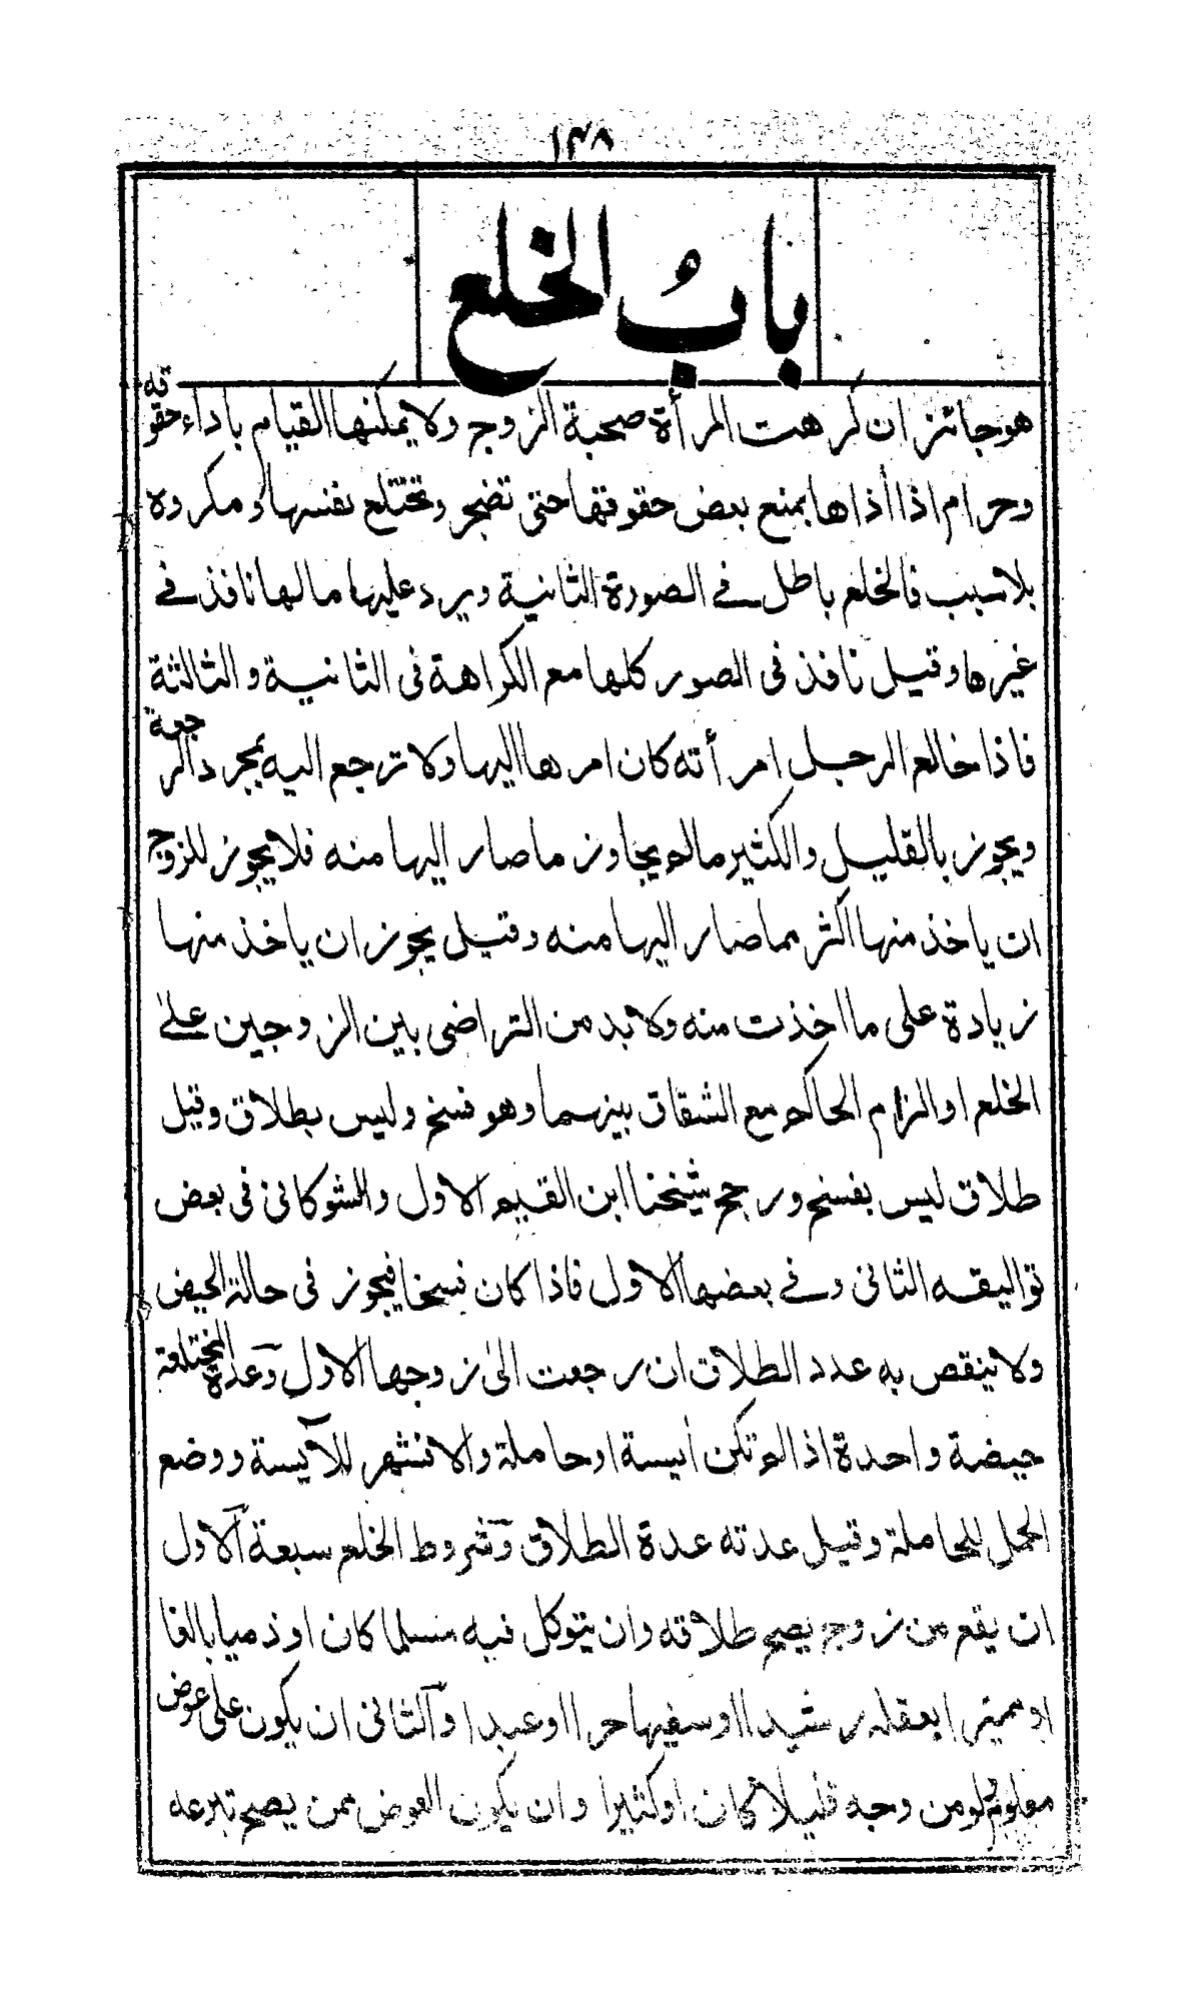 ۱۴۸
بابُ الخلع
هو جائز ان كرهت المرأة صحبة الزوج ولا يمكنها القيام باداء حقوقه
وحرام اذا أذاها بمنع بعض حقوقها حتى تضجر وتختلع نفسها و مكروه
بلا سبب فالخلع باطل في الصورة الثانية ويرد عليها مالها نافذ في
غيرها وقيل نافذ فى الصور كلها مع الكراهة فى الثانية والثالثة
فاذا خالع الرجل امرأته كان امرها اليها ولا ترجع اليه بمجرد الرجعة
ويجوز بالقليل والكثير مالم يجاوز ما صار اليها منه فلا يجوز للزوج
ان ياخذ منها اكثر مما صار اليها منه وقيل يجوز ان ياخذ منها
زيادة على ما اخذت منه ولا بد من التراضى بين الزوجين على
الخلع او الزام الحاكم مع الشقاق بينهما وهو فسخ وليس بطلاق وقيل
طلاق ليس بفسخ ورجح شيخنا ابن القيم الاول والشوكانى فى بعض
تواليفه الثانى وفي بعضها الاول فاذا كان فسخا فيجوز فى حالة الحيض
ولا ينقص به عدد الطلاق ان رجعت الى زوجها الاول وعدة المختلعة
حيضة واحدة اذا لم تكن أيسة او حاملة والا فشهر للآيسة ووضع
الحمل للحاملة وقيل عدته عدة الطلاق وشروط الخلع سبعة الاول
ان يقع من زوج يصح طلاقه وان يتوكل فيه مسلما كان او ذميا بالغا
او مميزا بعقله رشيدا او سفيها حرا او عبدا والثانى ان يكون على عوض
معلوم ولو من وجه قليلا كان او كثيرا وان يكون العوض ممن يصح تبرعه